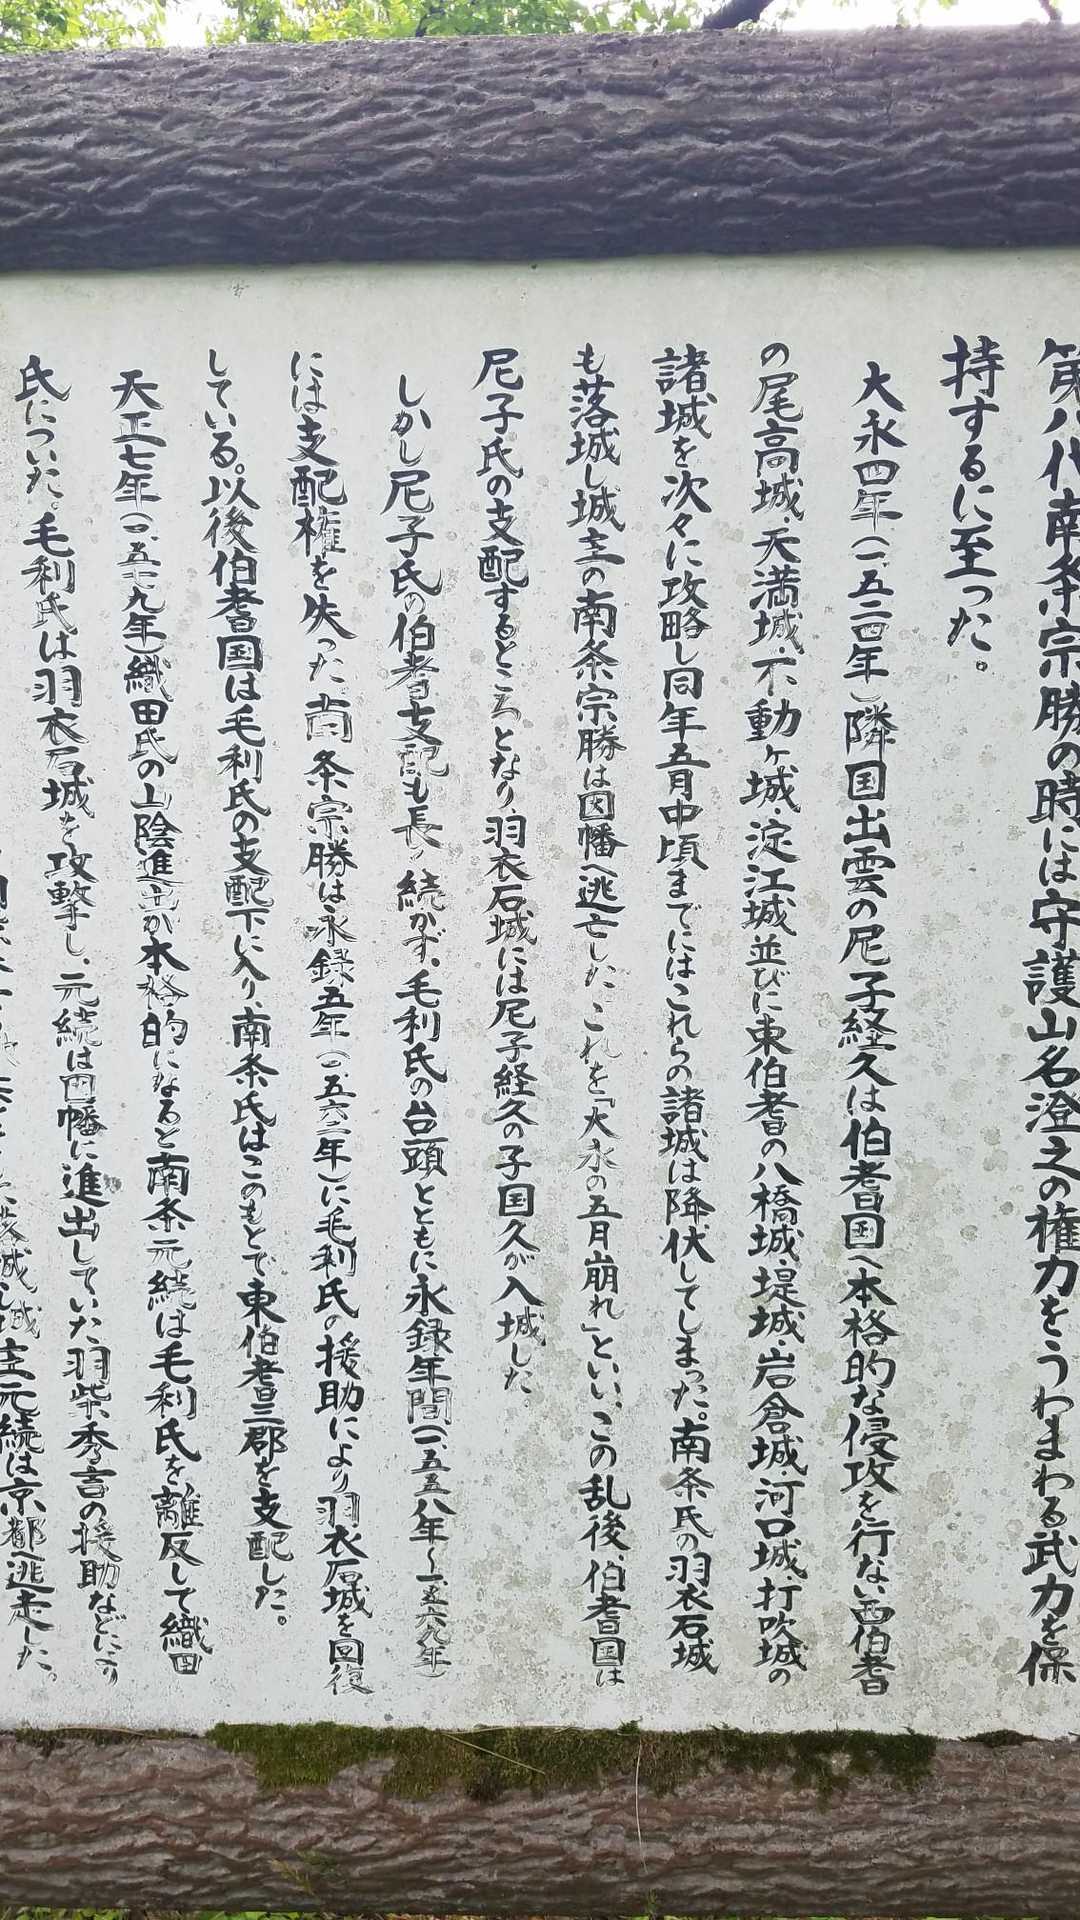 第八代南条宗勝の時には守護山名澄之の権力をうわまわる武力を保
持するに至った。
大永四年(一、五二四年)隣国出雲の尼子経久は伯耆国へ本格的な侵攻を行ない西伯耆
の尾高城、天満城、不動ヶ城、淀江城並びに東伯耆の八橋城、堤城、岩倉城、河口城、打吹城の
諸城を次々に攻略し同年五月中頃までにはこれらの諸城は降伏してしまった。南条氏の羽衣石城
も落城し城主の南条宗勝は因幡へ逃亡した。これを「大永の五月崩れ」といい、この乱後、伯耆国は
尼子氏の支配するところとなり、羽衣石城には尼子経久の子国久が入城した。
しかし尼子氏の伯耆支配も長く続かず、毛利氏の台頭とともに永録年間(一、五五八年～一、五六九年)
には支配権を失った。南条宗勝は永録五年(一、五六二年)に毛利氏の援助により羽衣石城を回復
している。以後伯耆国は毛利氏の支配下に入り、南条氏はこのもとで東伯耆三郡を支配した。
天正七年(一、五七九年)織田氏の山陰進出が本格的になると南条元続は毛利氏を離反して織田
氏についた。毛利氏は羽衣石城を攻撃し、元続は因幡に進出していた羽柴秀吉の援助などにより
落城し城主元続は京都へ逃走した。